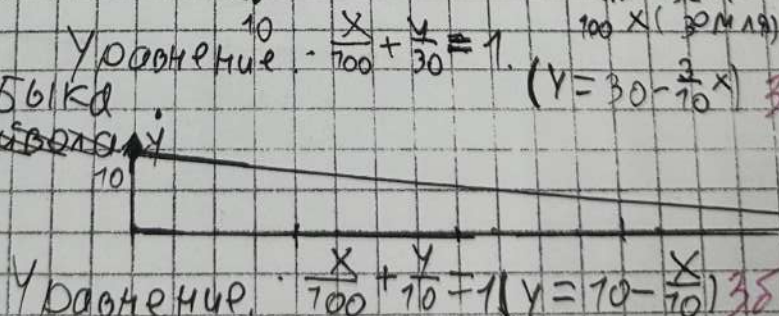 10 100 x (земля)
Уравнение: x/100 + y/30 = 1. (y = 30 - 3/10 x)
быка
y
10
Уравнение: x/100 + y/10 = 1 (y = 10 - x/10) 3б